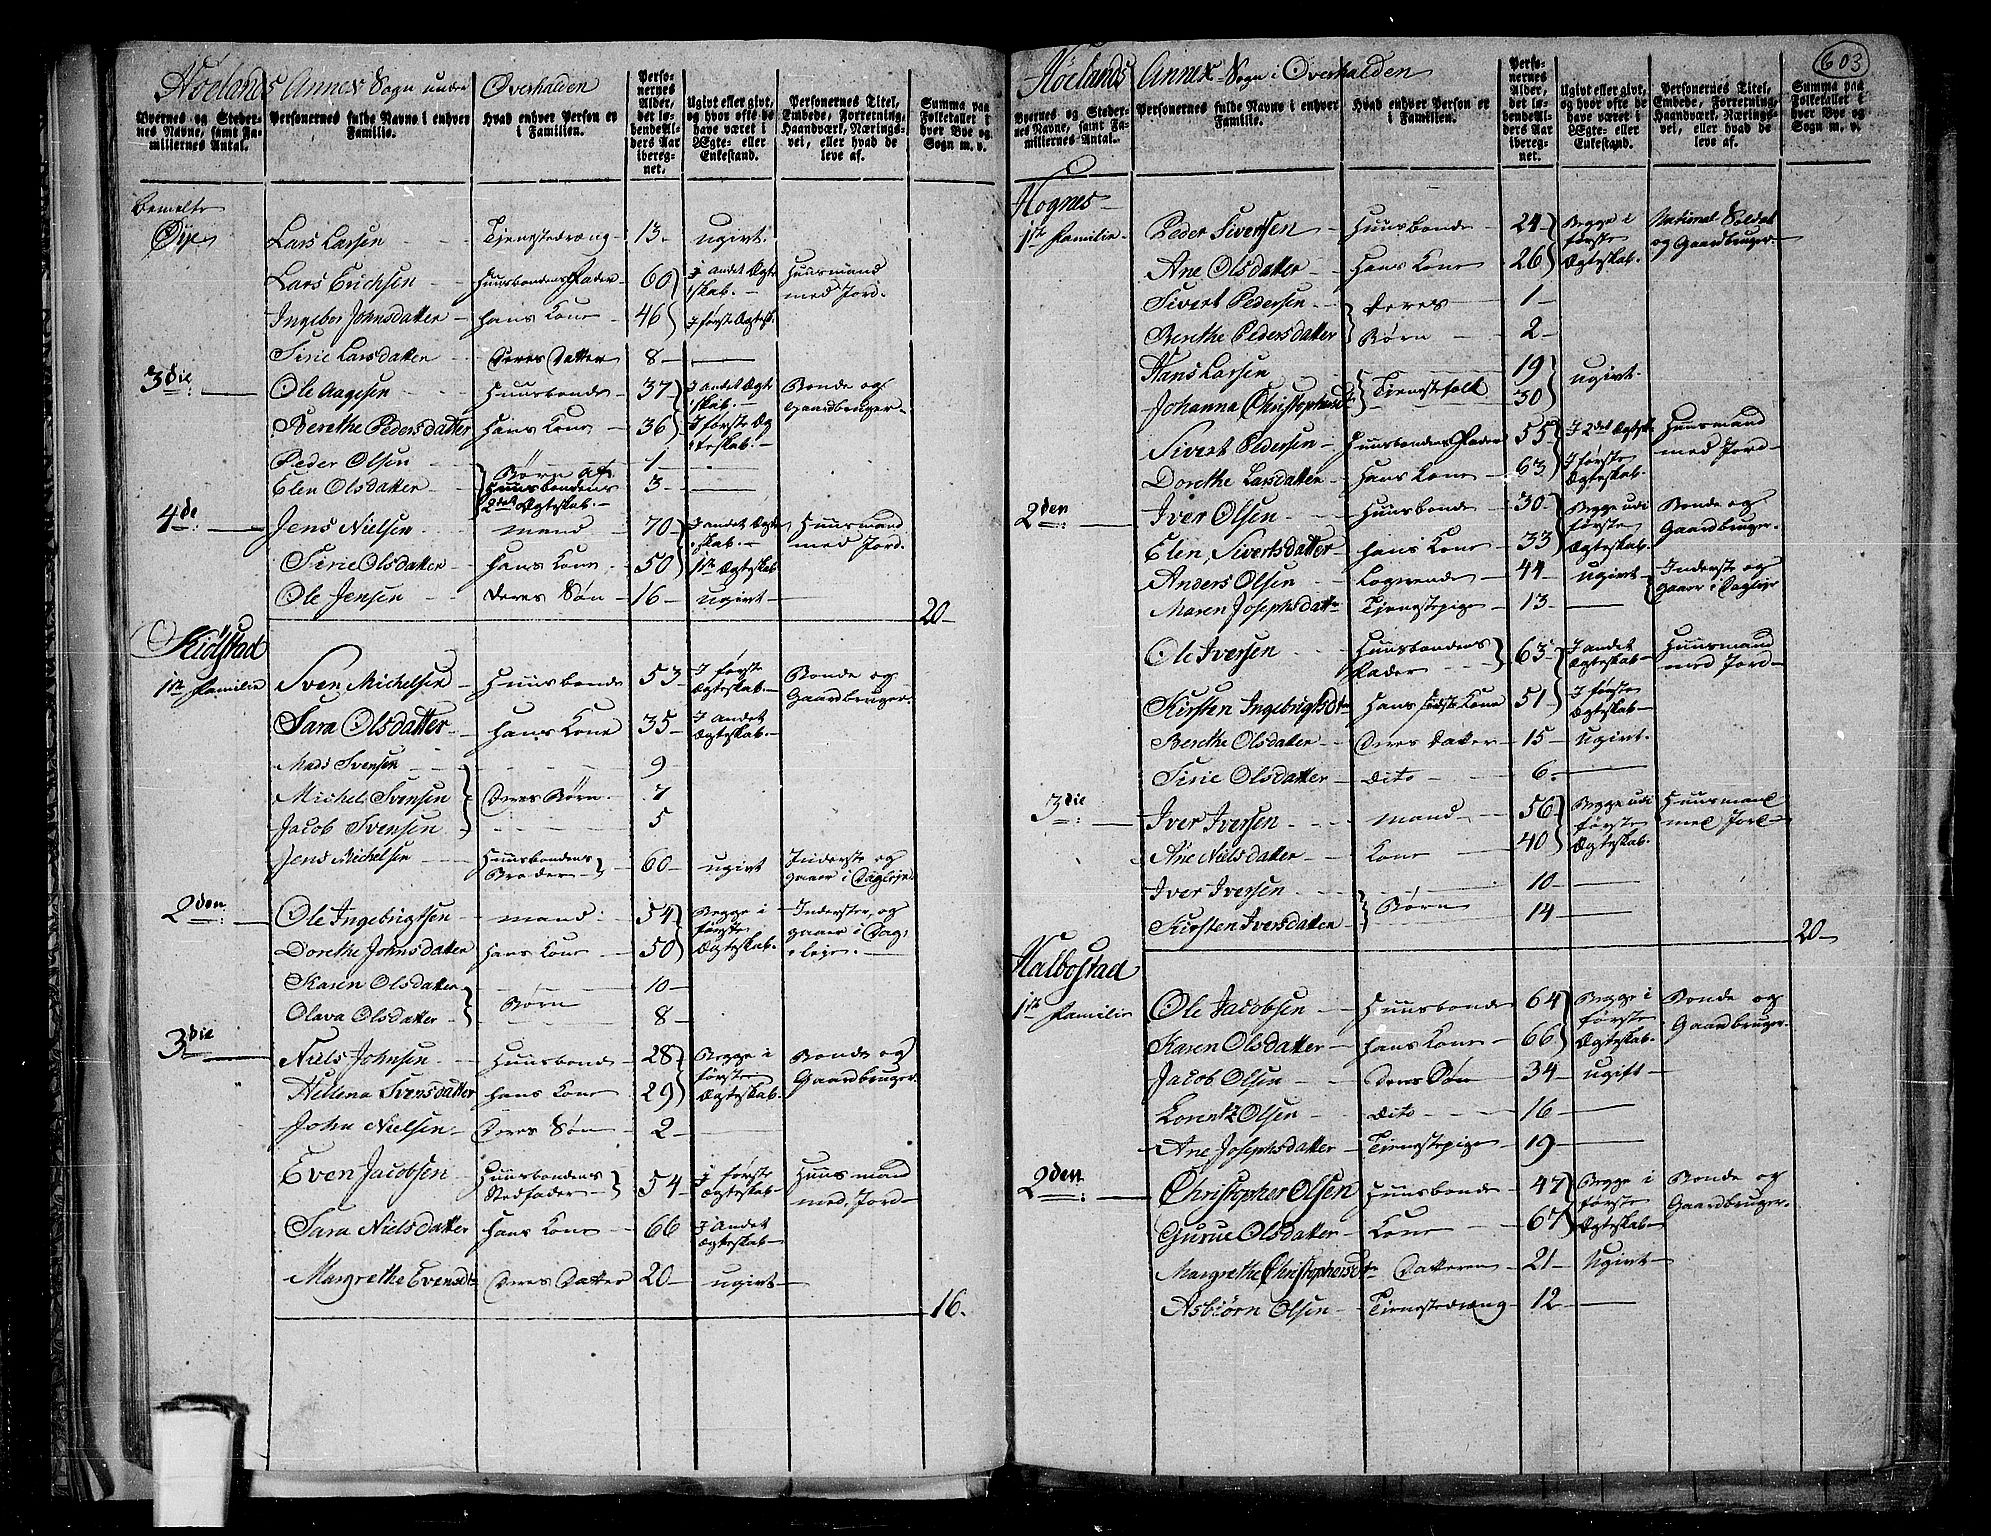 Høelands Annex Sogn under Overhalden
Byernes og Stedernes Navne, samt Familiernes Antal.
Personernes fulde Navne i enhver Familie.
Hvad enhver Person er i Familien.
Personernes Alder, det løbende Alders Aar iberegnet.
Ugivt eller givt, og hvor ofte de have været i Ægte- eller Enkestand.
Personernes Titel, Embede, Forretning, Haandværk, Næringsvei, eller hvad de leve af.
Summa paa Folketallet i hver Bye og Sogn m. v.
bemelte
Øye Lars Larsen Tjenstedreng 13 ugivt
Lars Erichsen Huusbondens Fader 60 I andet Ægteskab Huusmand med Jord
Ingebor Johnsdatter hans Kone 46 I første Ægtesk.
Sirie Larsdatter Deres Datter 8
3die Ole Aagesen Huusbonde 37 I andet Ægteskab Bonde og Gaardbruger
Berethe Pedersdatter Hans Kone 36 I første Ægteskab
Peder Olsen 1
Elen Olsdatter Børn af Huusbondens 2det Ægteskab 3
4de Jens Nielsen Mand 70 I andet Ægteskab Huusmand med Jord
Sirie Olsdatter Hans Kone 50 1te Ægteskab
Ole Jensen Deres Søn 16 ugivt
20
Kiølstad
1te Familie Sven Michelsen Huusbonde 53 I første Ægteskab Bonde og Gaardbruger
Sara Olsdatter Hans Kone 35 I andet Ægteskab
Mads Svensen 9
Michel Svensen Deres Børn 7
Jacob Svensen 5
Jens Michelsen Huusbondens Broder 60 ugivt Inderste og gaaer i Dagleje
2den Ole Ingebrigtsen Mand 54 Begge i første Ægteskab Inderster, og gaaer i Dagleje
Dorethe Johnsdatter Hans Kone 50
Karen Olsdatter 10
Olava Olsdatter Børn 8
3die Niels Johnsen Huusbonde 28 Begge i første Ægteskab Bonde og Gaardbruger
Hellena Svensdatter hans Kone 29
John Nielsen Deres Søn 2
Even Jacobsen Huusbondens Stedfader 54 I første Ægteskab Huusmand med Jord
Sara Nielsdatter Hans Kone 66 I Andet Ægteskab
Margrethe Evensdt. Deres Datter 20 ugivt
16
603
Høelands Annex Sogn i Overhalden
Byernes og Stedernes Navne, samt Familiernes Antal.
Personernes fulde Navne i enhver Familie.
Hvad enhver Person er i Familien.
Personernes Alder, det løbende Alders Aar iberegnet.
Ugivt eller givt, og hvor ofte de have været i Ægte- eller Enkestand.
Personernes Titel, Embede, Forretning, Haandværk, Næringsvei, eller hvad de leve af.
Summa paa Folketallet i hver Bye og Sogn m. v.
Hognes
1te Familie Peder Sivertsen Huusbonde 24 Begge i første Ægteskab National Soldat og Gaardbruger
Ane Olsdatter Hans Kone 26
Sivert Pedersen Deres 1
Berethe Pedersdatter Børn 2
Hans Larsen Tjenstefolk 19 ugivt
Johanna Christophersd. 30
Sivert Pedersen Huusbondens Fader 55 I 2det Ægtesk. Huusmand med Jord
Dorethe Larsdatter Hans Kone 63 I første Ægteskab
2den Iver Olsen Huusbonde 30 Begge udi første Ægteskab Bonde og Gaardbruger
Elen Sivertsdatter Hans Kone 33
Anders Olsen Logerende 44 ugivt Inderste og gaaer i Dagleje
Maren Josephsdatter Tjenstepige 13
Ole Iversen Huusbondens Fader 63 I andet Ægteskab Huusmand med Jord
Kirsten Ingebrigtsdtr Hans sidste Kone 51 I første Ægteskab
Berethe Olsdatter Deres Datter 15 ugivt
Sirie Olsdatter Dito 6
3die Iver Iversen Mand 56 Begge udi første Ægteskab Huusmand med Jord
Ane Nielsdatter Kone 40
Iver Iversen 10
Kirsten Iversdatter Børn 14
20
Halbostad
1te Familie Ole Jacobsen Huusbonde 64 Begge i første Ægteskab Bonde og Gaardbruger
Karen Olsdatter Hans Kone 66
Jacob Olsen Deres Søn 34 ugift
Lorentz Olsen Dito 16
Ane Josephsdatter Tienstepige 19
2den Christopher Olsen Huusbonde 47 Begge i første Ægteskab Bonde og Gaardbruger
Gurue Olsdatter Kone 67
Margrethe Christophersdtr Datteren 21 Ugivt
Asbiørn Olsen Tienstedreng 12